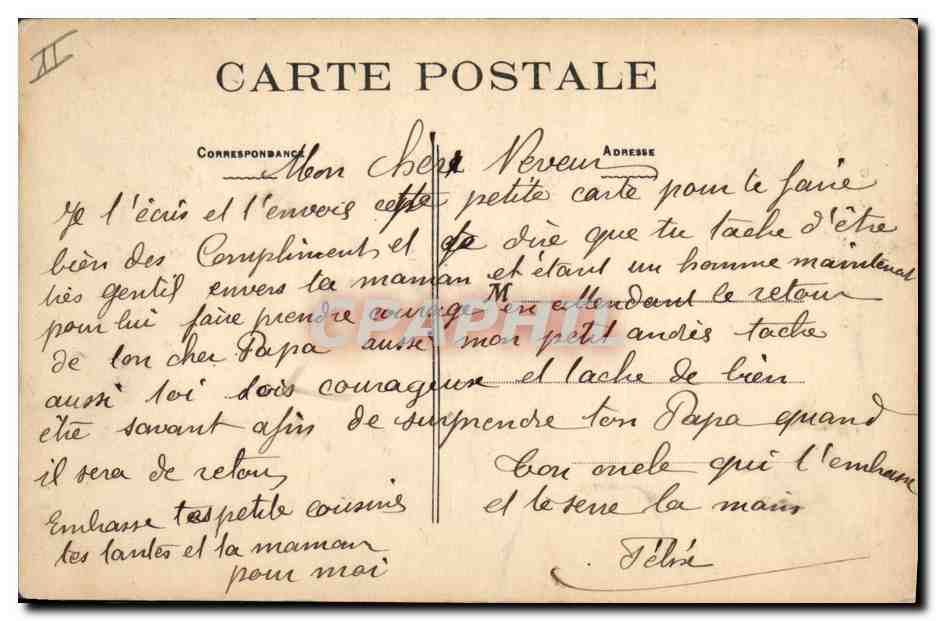 II
CARTE POSTALE
CORRESPONDANCE
ADRESSE
Mon Cher Neveux
Je t'écris et t'envois cette petite carte pour te faire
bien des Compliments et te dire que tu tache d'être
très gentil envers ta maman et étant un homme maintenant
pour lui faire prendre courage en attendant le retour
M
de ton cher Papa aussi mon petit andrès tache
aussi toi sois courageux et tache de bien
être savant afin de surprendre ton Papa quand
il sera de retour
ton oncle qui t'embrasse
et te serre la main
Félix
Embrasse tes petite cousine
tes tantes et ta maman
pour moi
CPAPHIL